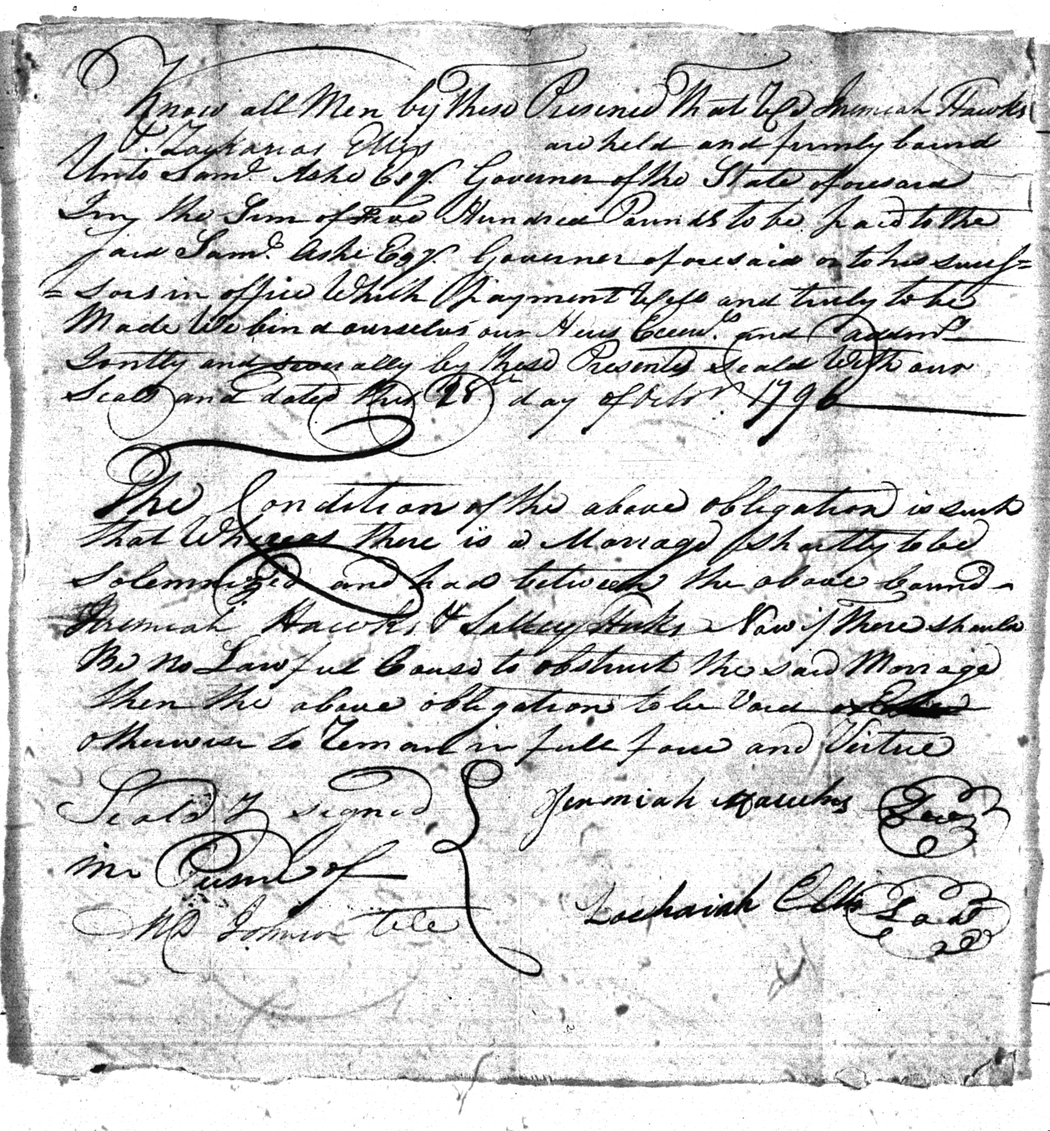 Know all Men by these Presened That We Jremiah Hawks
& Zackarias Ellis are held and firmly bound
Unto Saml. Ashe Esqr. Governer of the State aforesard
Inn the Sum of five Hundred Pounds to be paid to the
Said Saml. Ashe Esqr. Governer aforesaid or to his suces=
=sors in office Which Payment Well and truly to be
Made We bind ourselves our Heirs Execurs. and admrs.
Jontly and severally by these Presents Seald With our
Seals and dated this 28th day of Octor. 1796
The Condition of the above obligation is such
that Whereas there is a Marrage shortly to be
Solemnized and had between the above bound
Jremiah Hawks & Salley Now if There should
Be no Lawful Cause to obstruct the said Marrage
then the above obligation to be Void
otherwise to Reman in full force and Virtue
Seald & signed Jeremiah Hawks Seal
in Presnc of
Johnson Zachariah Ellis Seal